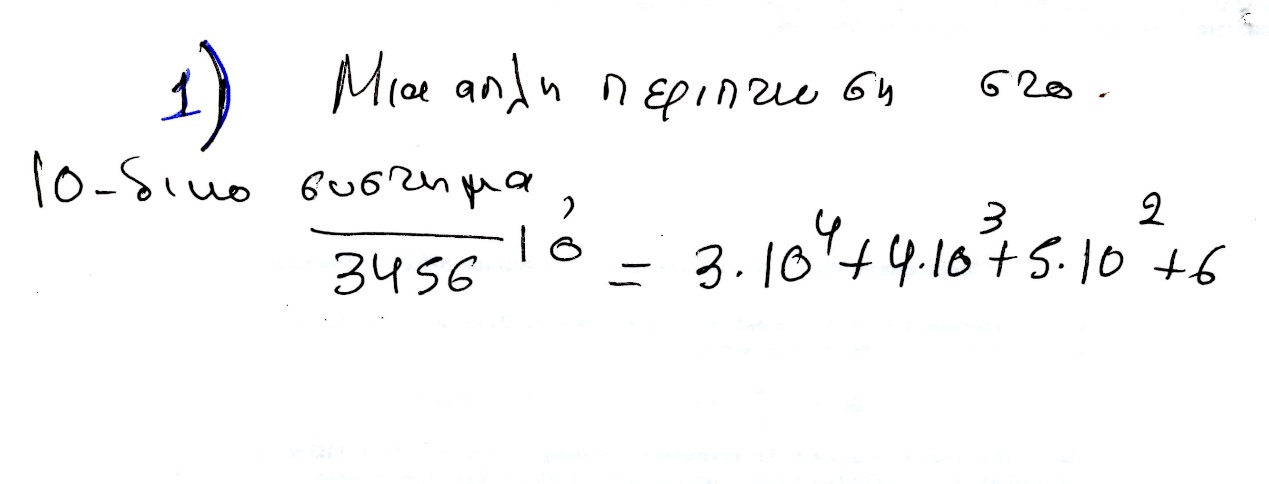 1) Μια απλη περιπτωση στο.
10-δικο συστημα,
3456 10 = 3.10⁴+4.10³+5.10²+6